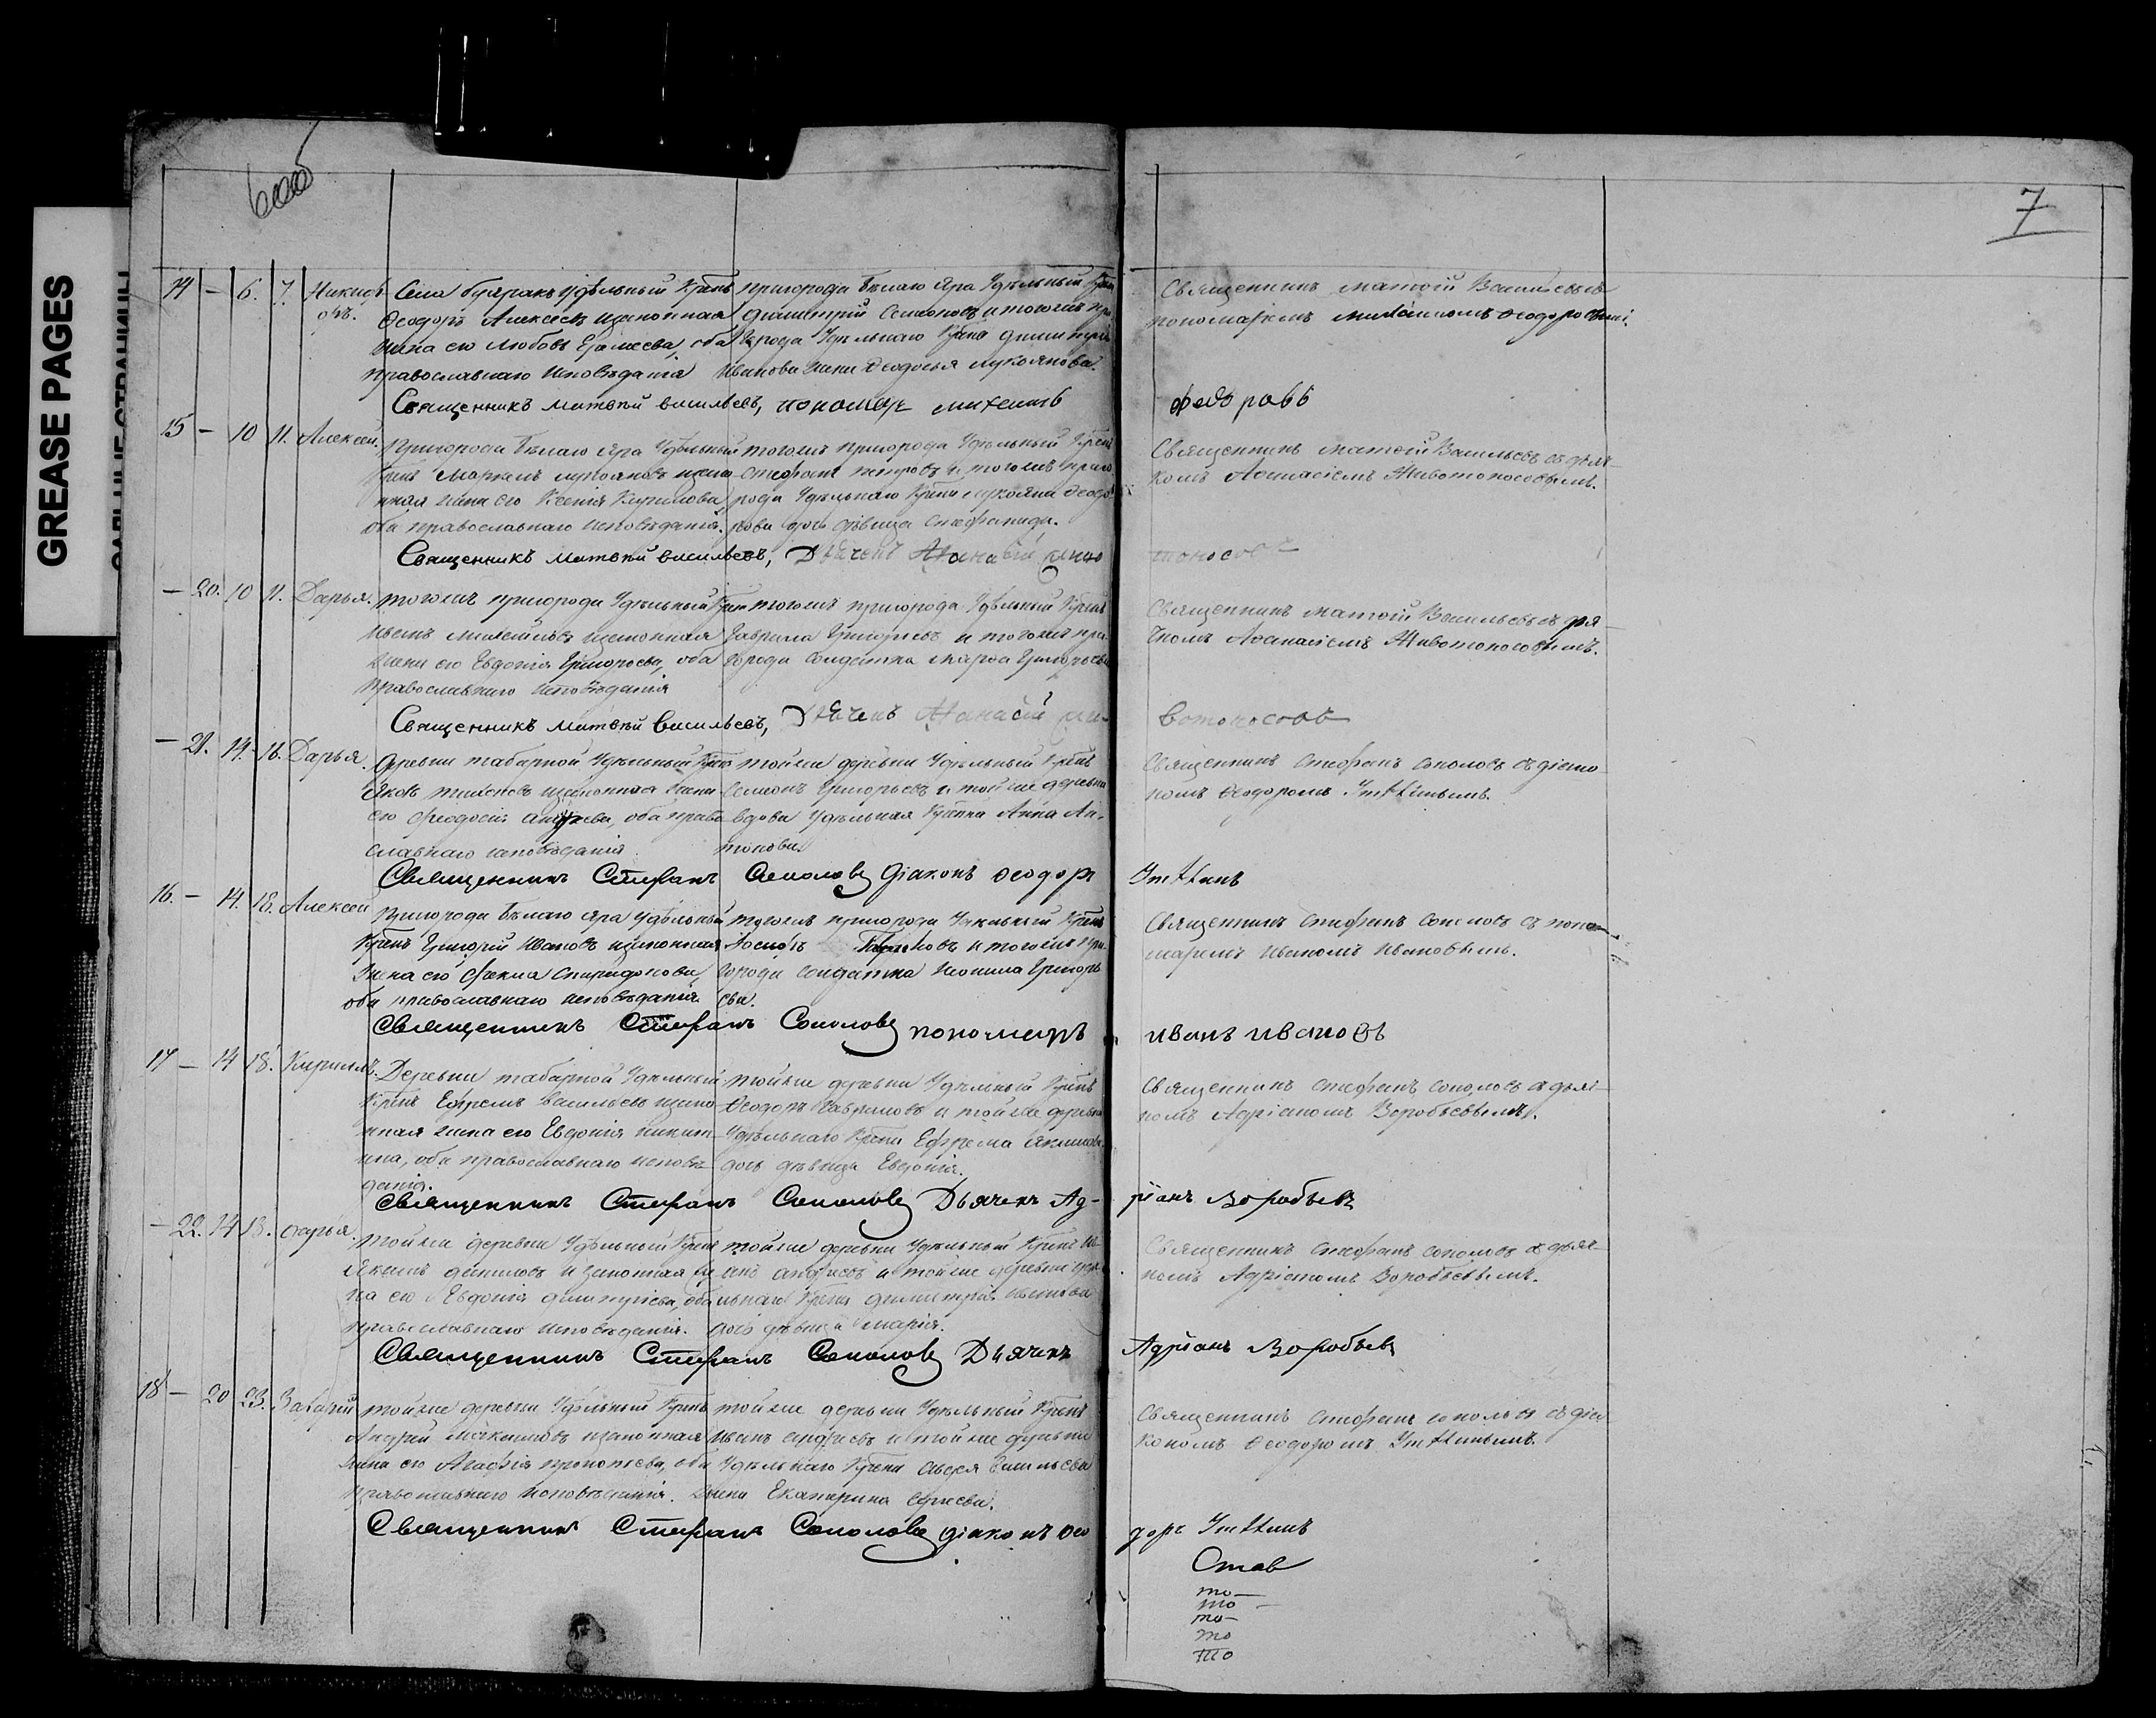 600б
7
GREASE PAGES
14 — 6. 7. Никиф
оръ.
Села Удѣльный Крест
Ѳеодоръ Алексѣевъ и законная
жена его Любовь Еремеева, оба
православнаго исповѣданія
пригорода Бѣлаго Яра Удѣльный Крест
Димитрій Семеновъ и тогожъ при
города Удѣльнаго Крест Димитрія
Иванова жена Ѳеодосья Лукоянова.
Священникъ Матѳій Васильевъ съ
пономаремъ Михаиломъ Ѳеодоровымъ.
Священникъ Матвѣй Васильевъ, пономарь Михаилъ Федоровъ
15 — 10 11. Алексѣй.
Пригорода Бѣлаго Яра Удѣльный
Крест Маркелъ Лукояновъ и зако
нная жена его Ксенія Кириллова,
оба православнаго исповѣданія.
тогожъ пригорода Удѣльный Крест
Стефанъ Петровъ и тогожъ приго
рода Удѣльнаго Крест Лукояна Ѳеодо
рова дочь дѣвица Стефанида.
Священникъ Матѳій Васильевъ съ дьяч
комъ Аѳанасіемъ Животоносовымъ.
Священникъ Матвѣй Васильевъ, Дьячекъ Аѳанасій Живо тоносовъ
— 20. 10 11. Дарья.
тогожъ пригорода Удѣльный Крест
Михайловъ и законная
жена его Евдокія Григорьева, оба
православнаго исповѣданія
тогожъ пригорода Удѣльный Крест
Гаврила Григорьевъ и тогожъ при
города солдатка Марѳа Григорьева
Священникъ Матѳій Васильевъ съ дья
чкомъ Аѳанасіемъ Животоносовымъ.
Священникъ Матвѣй Васильевъ, Дьячекъ Аѳанасій Жи- вотоносовъ
— 21. 14. 16. Дарья.
Деревни Табарной Удѣльный Крест
Яковъ Тихоновъ и законная жена
его Ѳеодосія Андреева, оба право
славнаго исповѣданія.
тойже деревни Удѣльный Крест
Семенъ Григорьевъ и тойже деревни
вдова Удѣльная Крестка Анна Ан-
тонова.
Священникъ Стефанъ Соколовъ съ діако
номъ Ѳеодоромъ
Священникъ Стефанъ Соколовъ Діаконъ Ѳеодоръ
16. — 14. 18. Алексѣй
Пригорода Бѣлаго Яра Удѣльный
Крест Григорій Ивановъ и законная
жена его Ѳекла Спиридонова,
оба православнаго исповѣданія.
тогожъ пригорода Удѣльный Крест
Іосифъ и тогожъ при-
города солдатка Григорь
ева.
Священникъ Стефанъ Соколовъ съ поно-
маремъ Иваномъ Ивановымъ.
Священникъ Стефанъ Соколовъ пономарь Иванъ Ивановъ
17 — 14 18. Кириллъ.
Деревни Табарной Удѣльный
Крест Ефремъ Васильевъ и зако
нная жена его Евдокія Никит
ина, оба православнаго исповѣ
данія.
тойже деревни Удѣльный Крест
Ѳеодоръ Гавриловъ и тойже деревни
Удѣльнаго Крест Ефрема Якимова
дочь дѣвица Евдокія.
Священникъ Стефанъ Соколовъ съ дьяч
комъ Адріаномъ Воробьевымъ.
Священникъ Стефанъ Соколовъ Дьячекъ Ад- ріанъ Воробьевъ
— 22. 14 18. Дарья.
тойже деревни Удѣльный Крест
Якимъ Даниловъ и законная же
на его Евдокія Димитріева, оба
православнаго исповѣданія.
тойже деревни Удѣльный Крест И-
ванъ Андреевъ и тойже деревни Удѣ
льнаго Крест Димитрія Иванова
дочь дѣвица Марія.
Священникъ Стефанъ Соколовъ съ дьяч
комъ Адріаномъ Воробьевымъ.
Священникъ Стефанъ Соколовъ Дьячекъ Адріанъ Воробьевъ
18 — 20 23. Захарій
тойже деревни Удѣльный Крест
Андрей Максимовъ и законная
жена его Агафія Прокопьева, оба
православнаго исповѣданія.
тойже деревни Удѣльный Крест
Иванъ Андреевъ и тойже деревни
Удѣльнаго Крест Васильева
жена Екатерина
Священникъ Стефанъ Соколовъ съ діа
кономъ Ѳеодоромъ
Священникъ Стефанъ Соколовъ діаконъ Ѳео доръ
то—
то—
то—
то
то